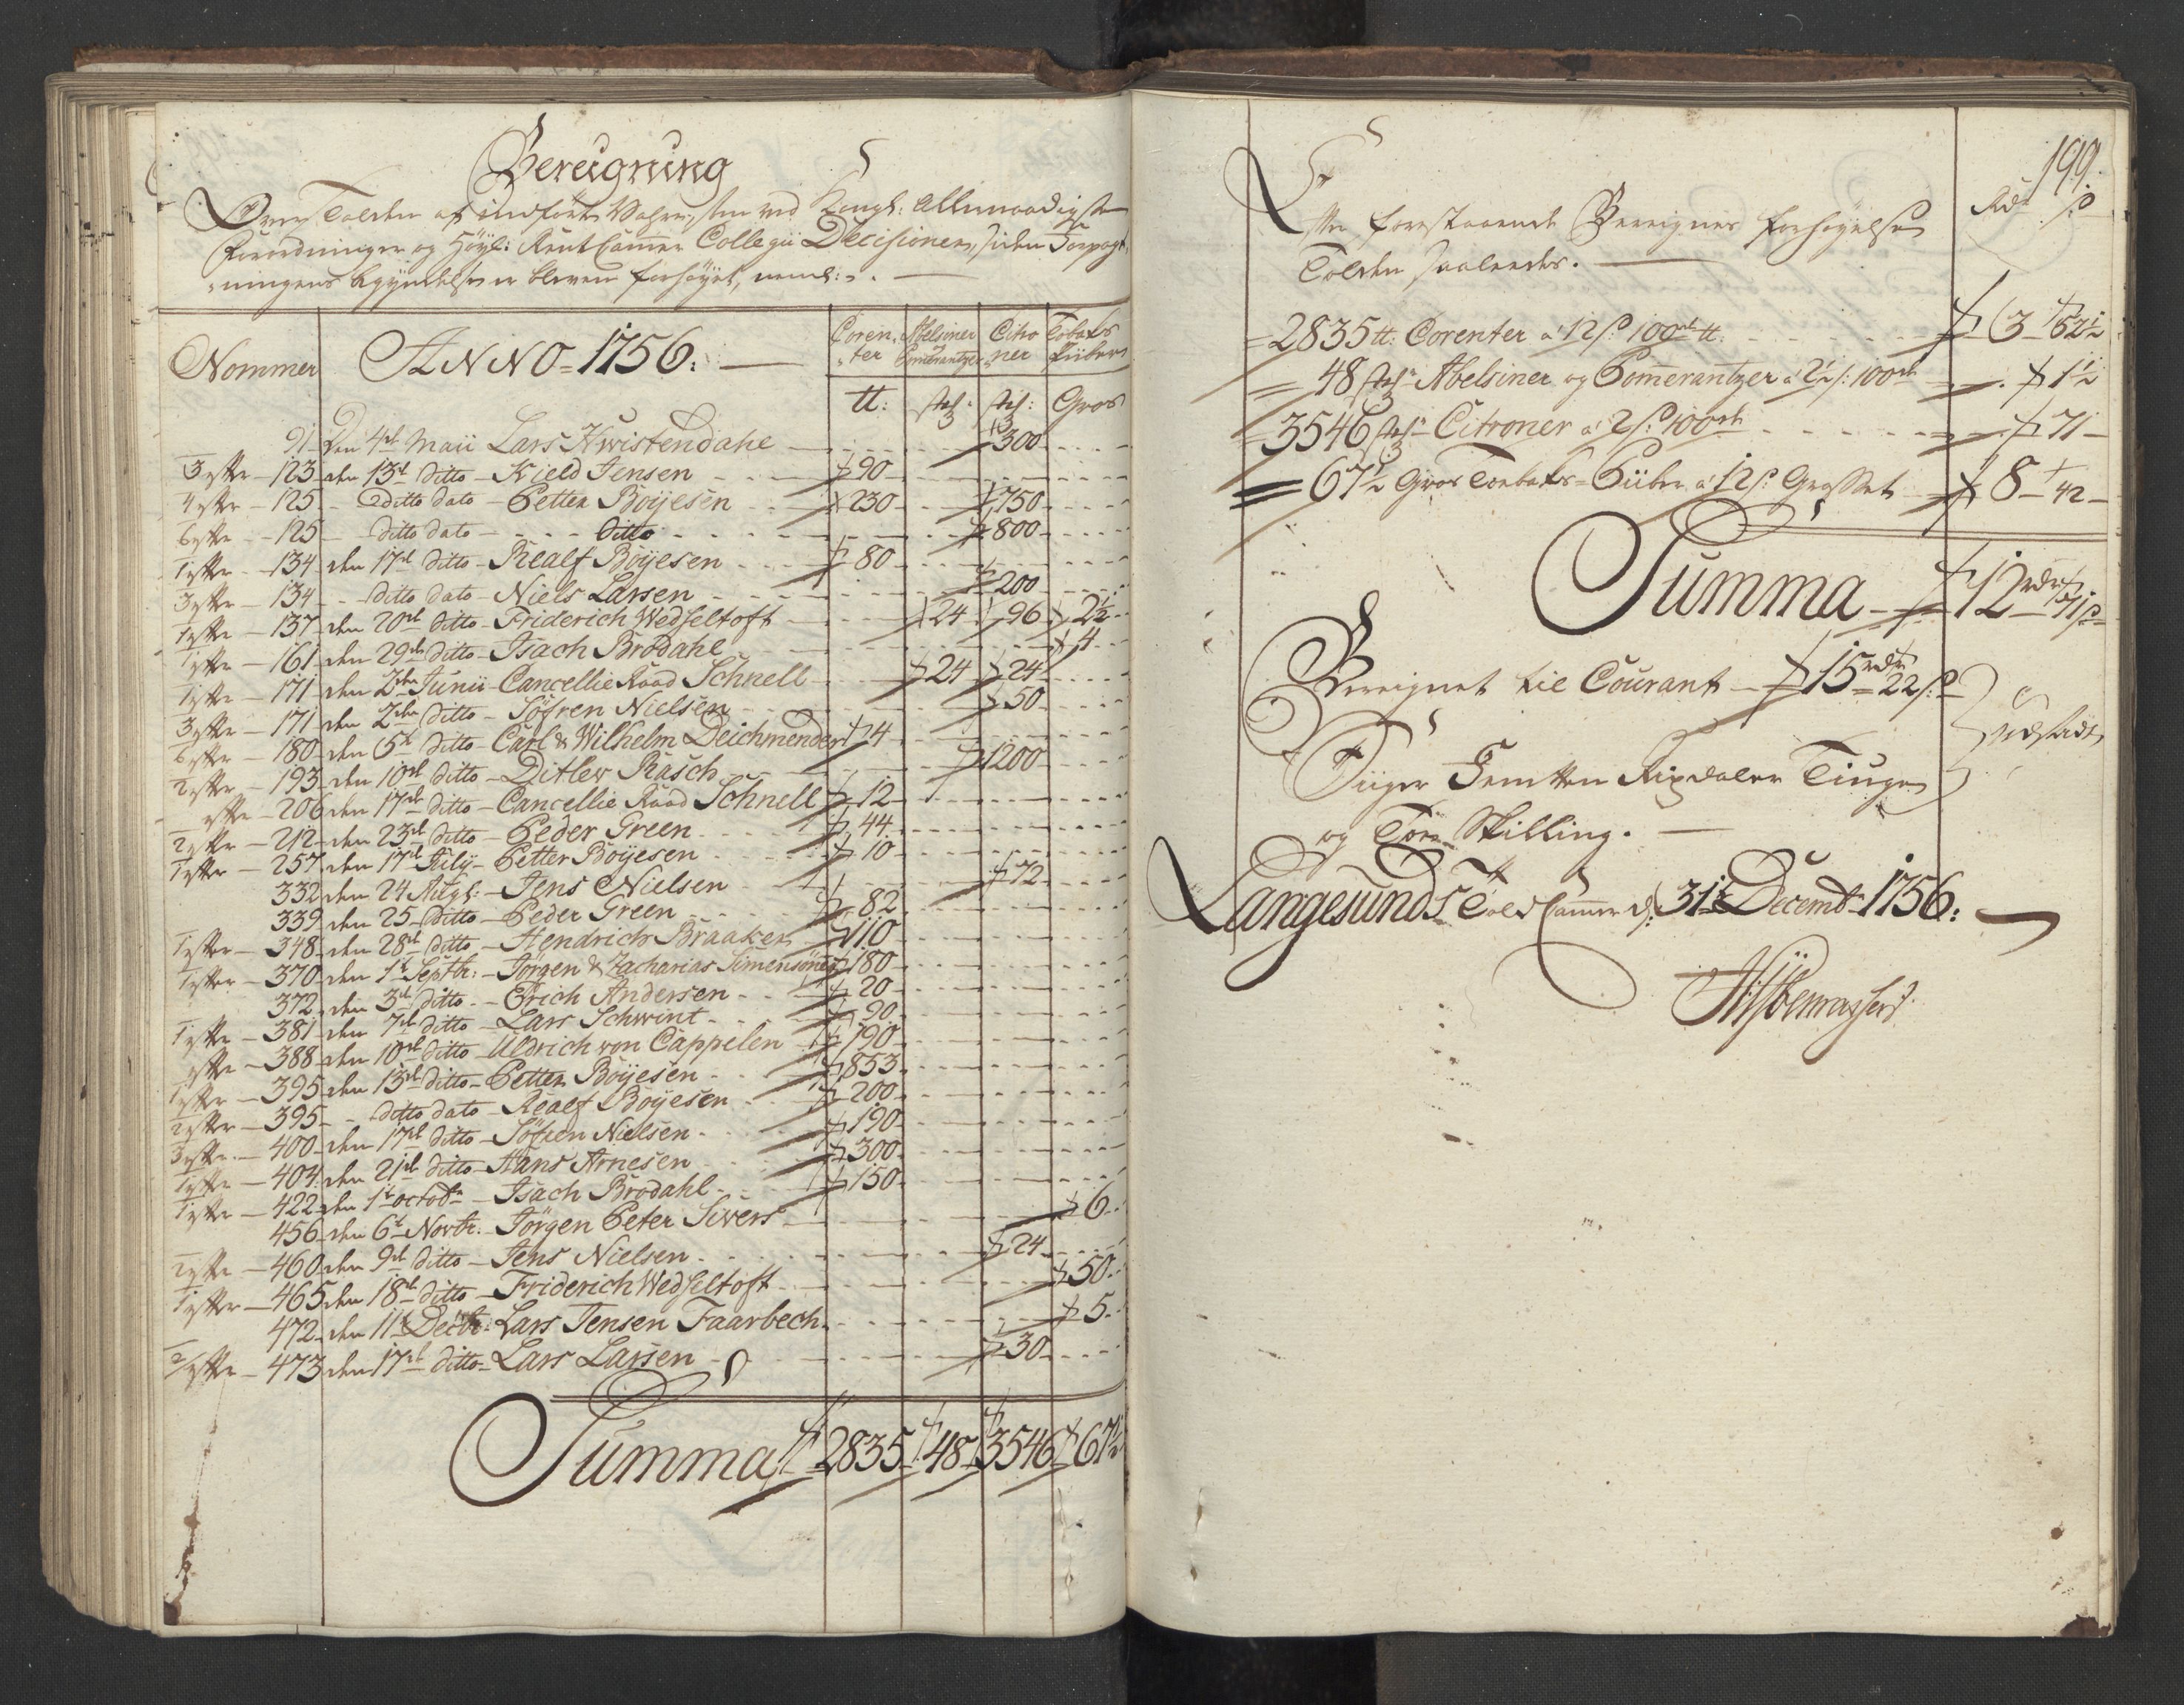 Bereigning
Over Tolden af indførte Vahre, som ved Kongl: Allernaadigste
Forordninger og Høyl: Rente Cammer Collegii Decisioner, siden Forpagt,
,ningens Begyndelse er bleven forhøyet, neml:
Nommer ANNO 1756. Coren,ter Abelsiner & Pomerantzer Citroner Tobaks Piiber
tt: stk: stk: Gros
91 Den 4de Maii Lars Hwistendahl 300
3 123 den 13de Ditto Kield Jensen 90
4 125 Ditto Dato Petter Boÿesen 230 750
6 125 ditto dato Ditto 800
1 134 den 17de Ditto Realf Boÿesen 80
3 134 Ditto dato Niels Larsen 200
1 137 den 20de Ditto Friderich Wedseltoft 24 96 2½
1 161 den 29de Ditto Isach Brodahl 4
1 171 den 2den Junii Cancellie Raad Schnell 24 24
3 171 den 2den Ditto Söfren Nielsen 50
6 180 den 5te Ditto Carl & Wilhelm Deichmender 4
2 193 den 10de Ditto Ditlev Rasch 1200
206 den 17de Ditto Cancellie Raad Schnell 12
2 212 den 23de Ditto Peder Green 44
1 257 den 17de Julÿ Petter Boÿesen 10
332 den 24 Augs: Jens Nielsen 72
339 den 25 Ditto Peder Green 82
1 348 den 28de Ditto Hendrich Braaken 110
1 370 den 1te Septbr: Jörgen & Zacharias Simensöner 180
372 den 3de Ditto Erich Andersen 20
1 381 den 7de Ditto Lars Schwint 90
388 den 10de Ditto Uldrich von Cappelen 190
1 395 den 13de Ditto Petter Boÿesen 853
2 395 ditto dato Realf Boÿesen 200
3 400 den 17de Ditto Söfren Nielsen 190
1 404 den 21de Ditto Hans Arnesen 300
1 422 den 1te octobr Isach Brodahl 150
456 den 6te Novbr: Jörgen Peter Sivers 6
2 460 den 9de Ditto Jens Nielsen 24
1 465 den 18de Ditto Friderich Wedseltoft 50
472 den 11te Decbr: Lars Jensen Faarbech 5
2/1 473 den 17de Ditto Lars Larsen 30
Summa 2835 48 3546 67½
199.
Rdr ß
Efter forestaaende Bereignes forhøyelse
Tolden saaledes.
2835 tt: Corenter á 12 ß 100de tt. 3 52½
48 stk: Abelsiner og Pomerantzer á 2½ ß: 100de 1½
3546 stk: Citroner á 2 ß: 100de 71
67½ Gros Toebaks Piiber á 12 ß Grosset 8 42
Summa 12 rdr 71 ß
Bereignet til Courant 15 rdr 22 ß
Siiger Femten Rixdaler Tiuge
og Toe Skilling.
Langesunds Told Cammer d: 31te Decembr 1756.